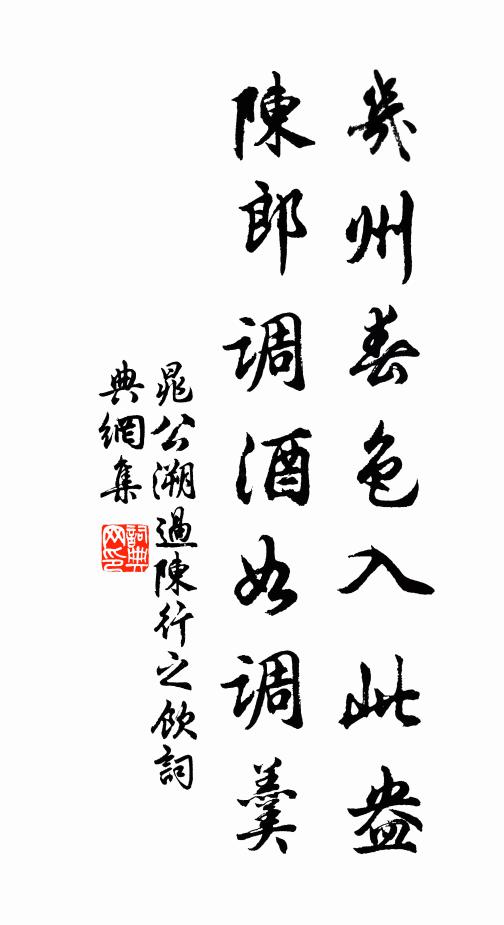 幾州春色入此盎
陳郎調酒如調羹
晁公溯過陳行之飲詞
典網集
詞典網印